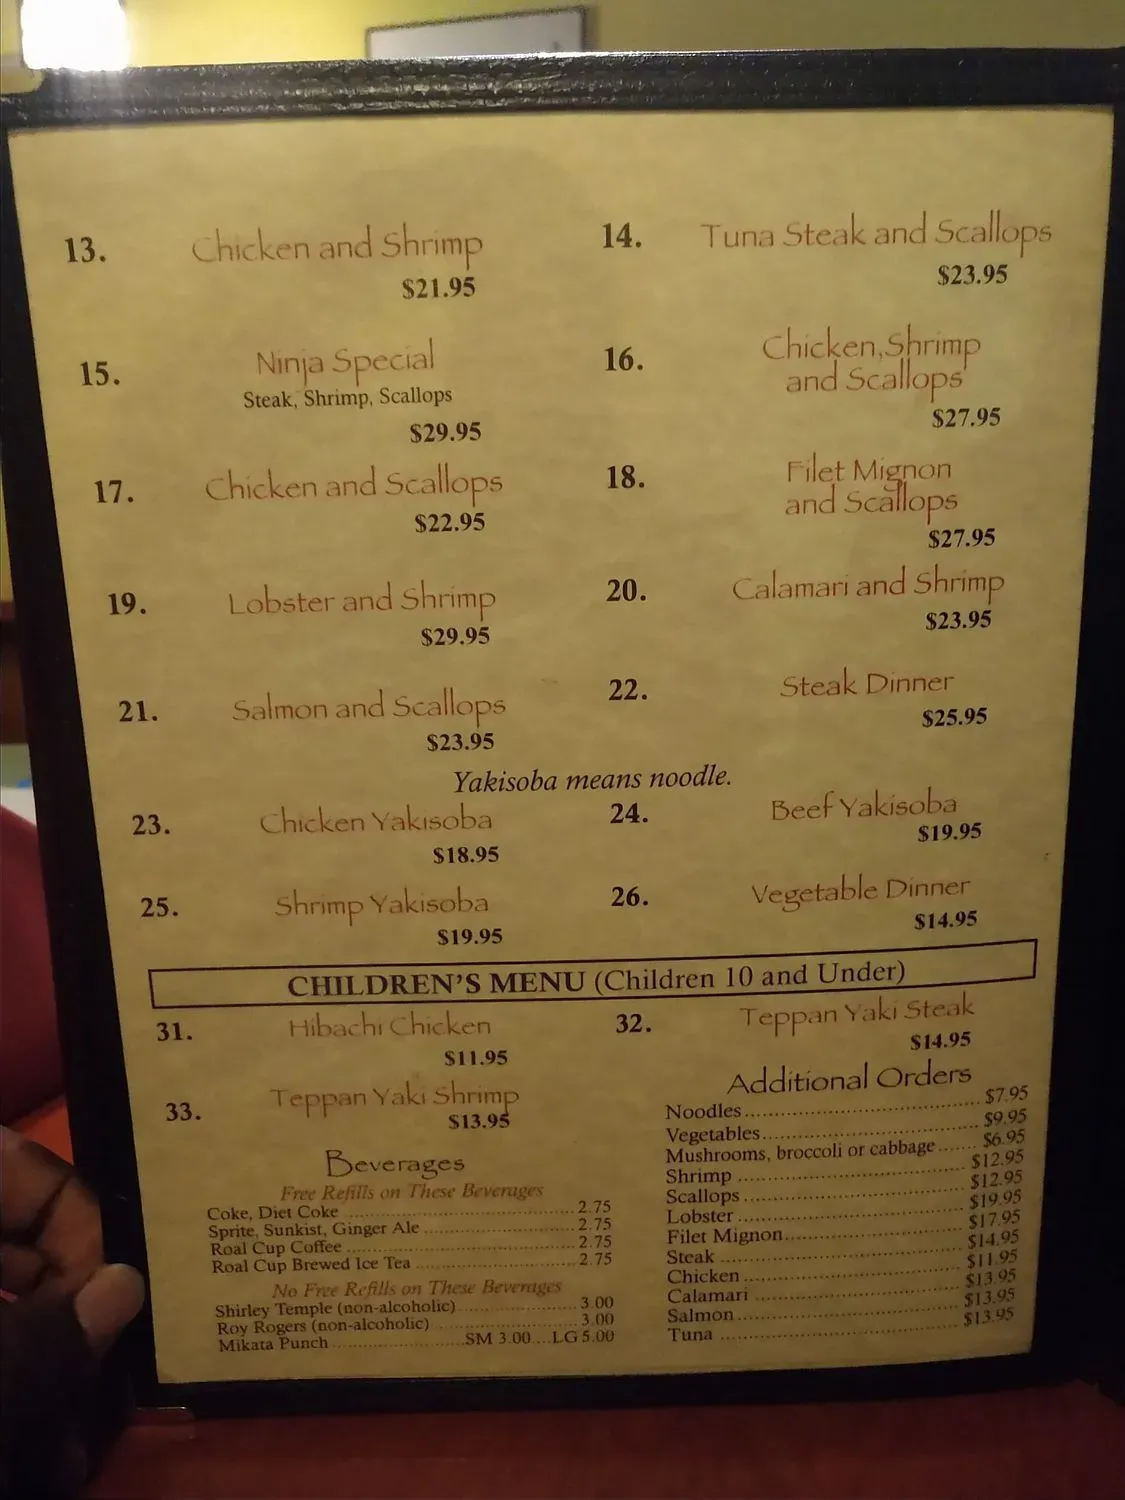 13. Chicken and Shrimp
$21.95
14. Tuna Steak and Scallops
$23.95
15. Ninja Special
Steak, Shrimp, Scallops
$29.95
16. Chicken, Shrimp
and Scallops
$27.95
17. Chicken and Scallops
$22.95
18. Filet Mignon
and Scallops
$27.95
19. Lobster and Shrimp
$29.95
20. Calamari and Shrimp
$23.95
21. Salmon and Scallops
$23.95
22. Steak Dinner
$25.95
Yakisoba means noodle.
23. Chicken Yakisoba
$18.95
24. Beef Yakisoba
$19.95
25. Shrimp Yakisoba
$19.95
26. Vegetable Dinner
$14.95
CHILDREN'S MENU (Children 10 and Under)
31. Hibachi Chicken
$11.95
32. Teppan Yaki Steak
$14.95
33. Teppan Yaki Shrimp
$13.95
Beverages
Free Refills on These Beverages
Coke, Diet Coke 2.75
Sprite, Sunkist, Ginger Ale 2.75
Roal Cup Coffee 2.75
Roal Cup Brewed Ice Tea 2.75
No Free Refills on These Beverages
Shirley Temple (non-alcoholic) 3.00
Roy Rogers (non-alcoholic) 3.00
Mikata Punch SM 3.00 LG 5.00
Additional Orders
Noodles $7.95
Vegetables $9.95
Mushrooms, broccoli or cabbage $6.95
Shrimp $12.95
Scallops $12.95
Lobster $19.95
Filet Mignon $17.95
Steak $14.95
Chicken $11.95
Calamari $13.95
Salmon $13.95
Tuna $13.95